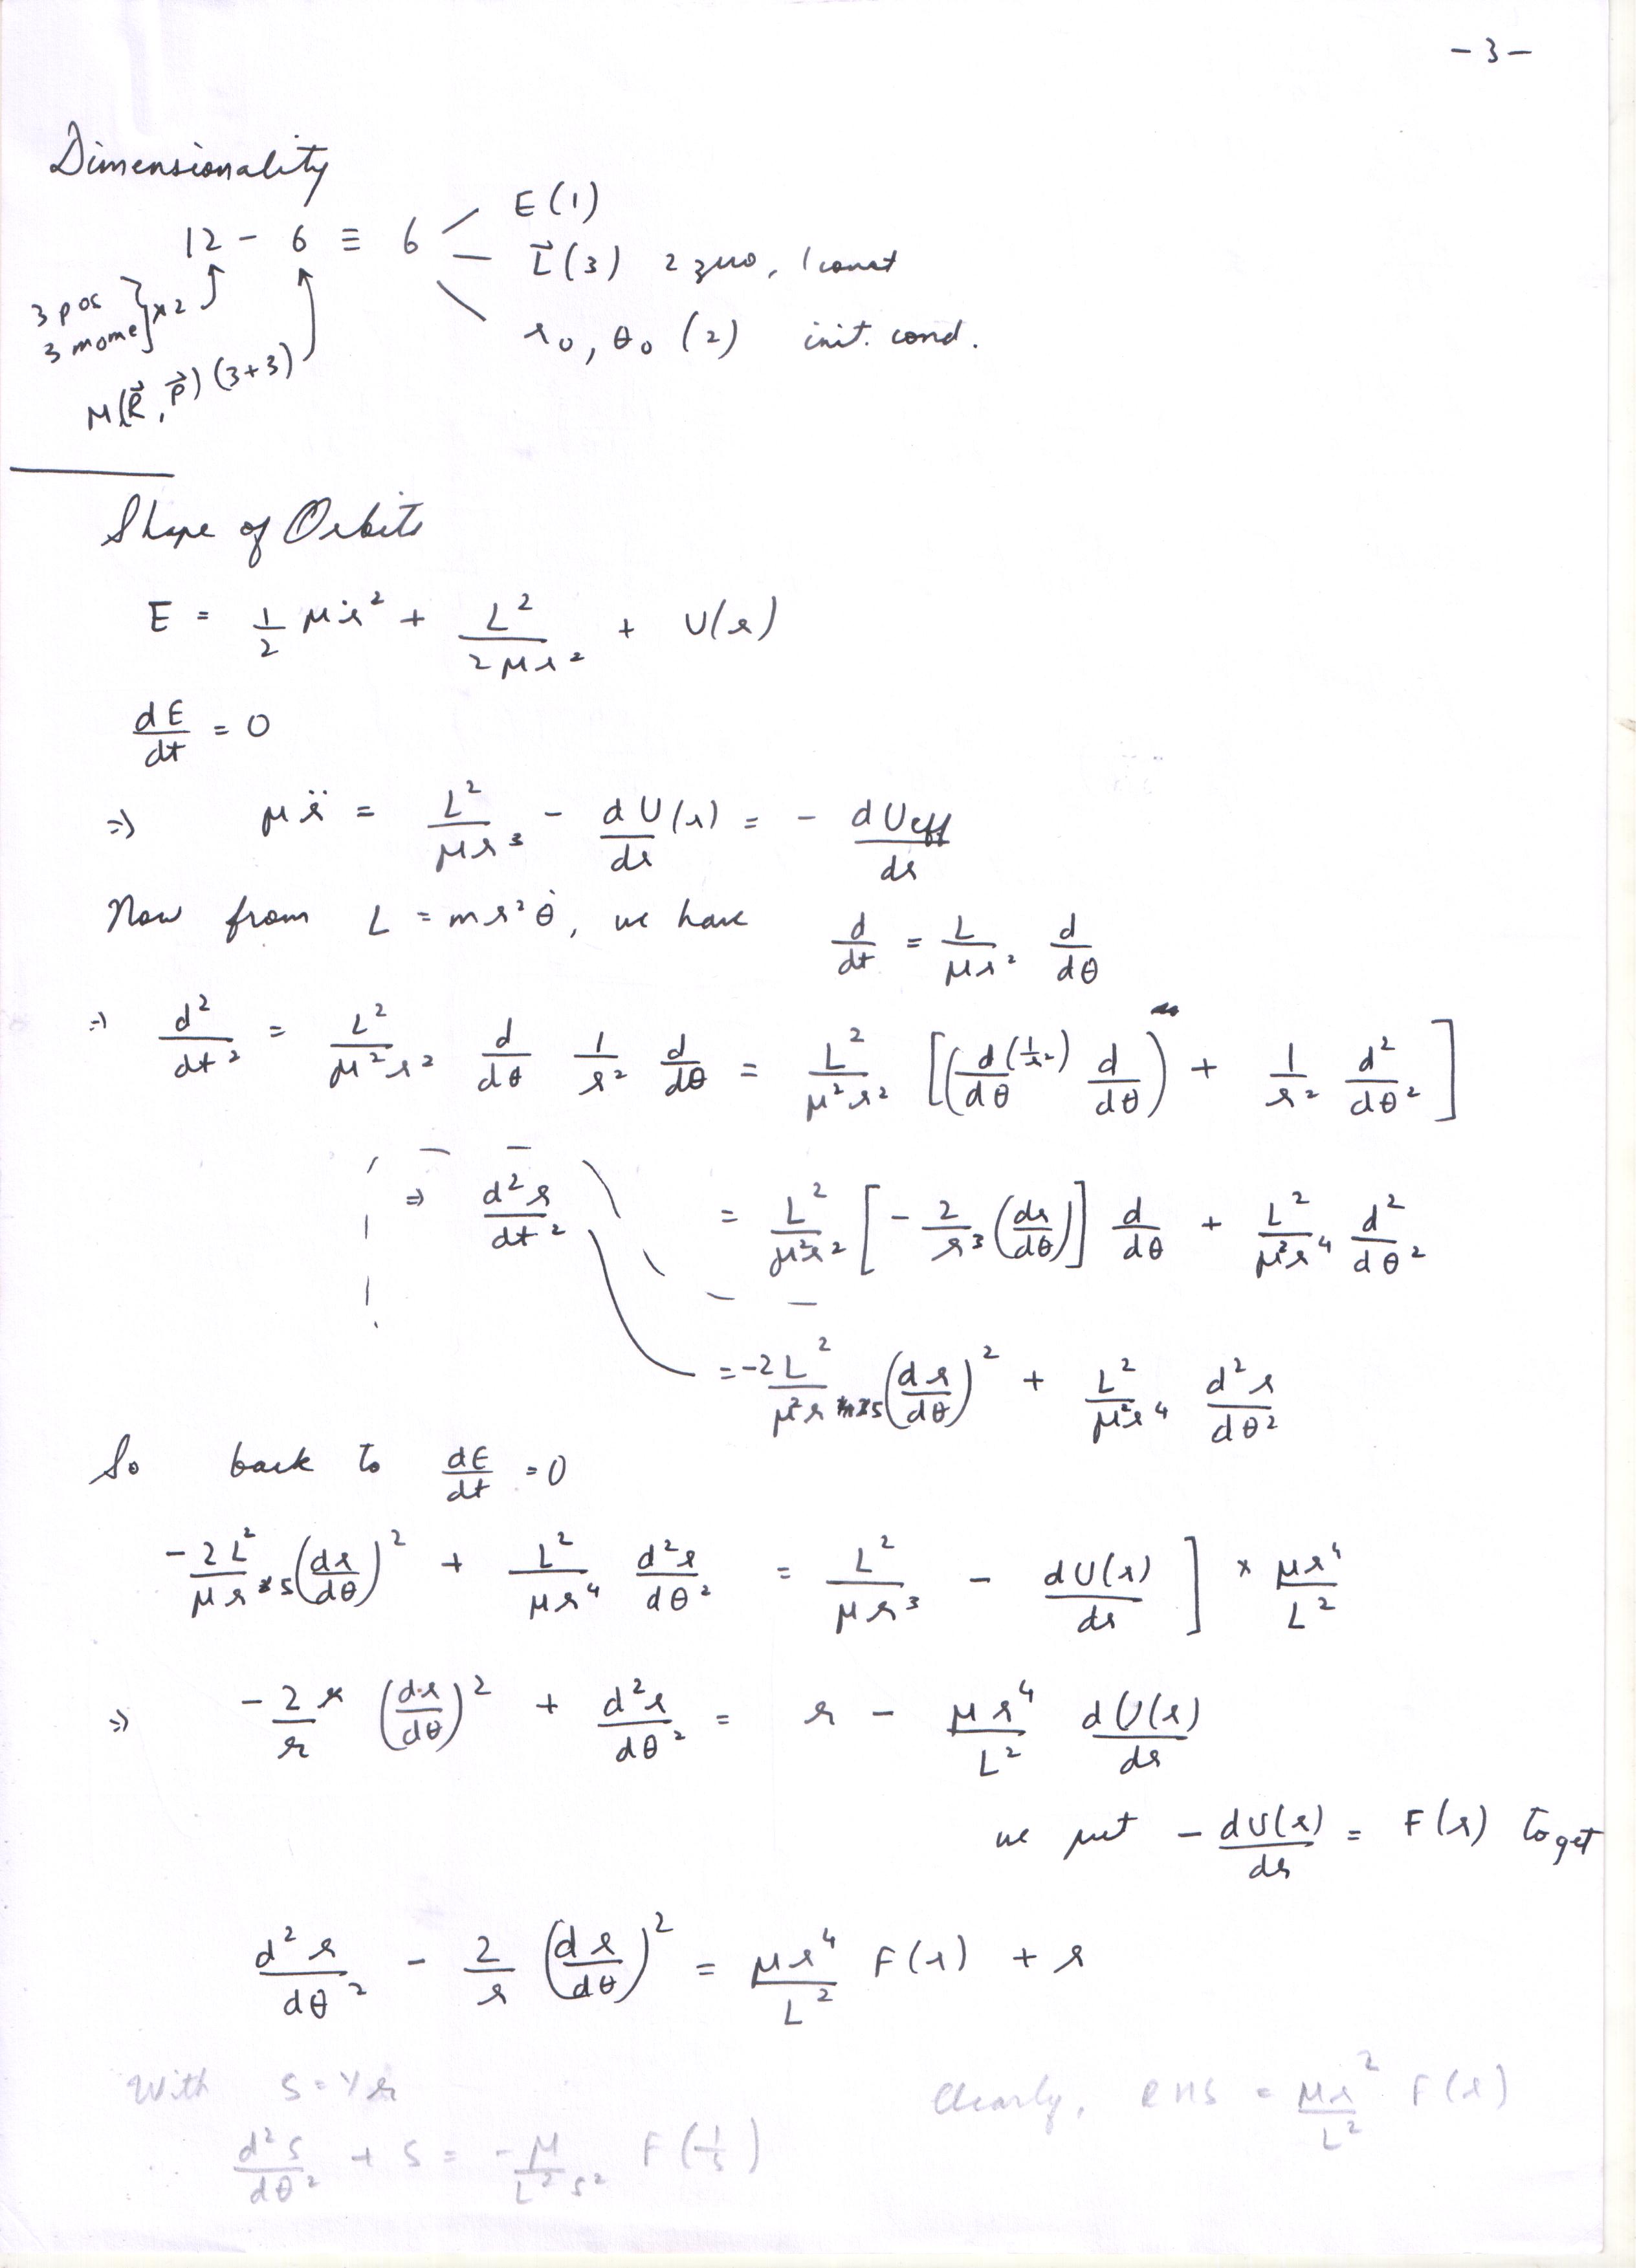 - 3 -
Dimensionality
12 - 6 ≡ 6
E (1)
L⃗ (3) 2 zero, 1 const
r₀, θ₀ (2) init. cond.
3 pos
3 mome } x 2
M(R⃗, P⃗) (3+3)
Shape of Orbits
E = 1/2 μṙ² + L²/2μr² + U(r)
dE/dt = 0
⇒ μr̈ = L²/μr³ - dU(r)/dr = - dUeff/dr
Now from L = mr²θ̇, we have d/dt = L/μr² d/dθ
⇒ d²/dt² = L²/μ²r² d/dθ 1/r² d/dθ = L²/μ²r² [(d(1/r²)/dθ d/dθ) + 1/r² d²/dθ²]
⇒ d²r/dt² = L²/μ²r² [- 2/r³ (dr/dθ)] d/dθ + L²/μ²r⁴ d²/dθ²
= -2L²/μ²r⁵ (dr/dθ)² + L²/μ²r⁴ d²r/dθ²
So back to dE/dt = 0
-2L²/μr⁵ (dr/dθ)² + L²/μr⁴ d²r/dθ² = L²/μr³ - dU(r)/dr ] × μr⁴/L²
⇒ -2/r (dr/dθ)² + d²r/dθ² = r - μr⁴/L² dU(r)/dr
we put - dU(r)/dr = F(r) to get
d²r/dθ² - 2/r (dr/dθ)² = μr⁴/L² F(r) + r
With s = 1/r
Clearly, RHS = μr²/L² F(r)
d²s/dθ² + s = - μ/L²s² F(1/s)